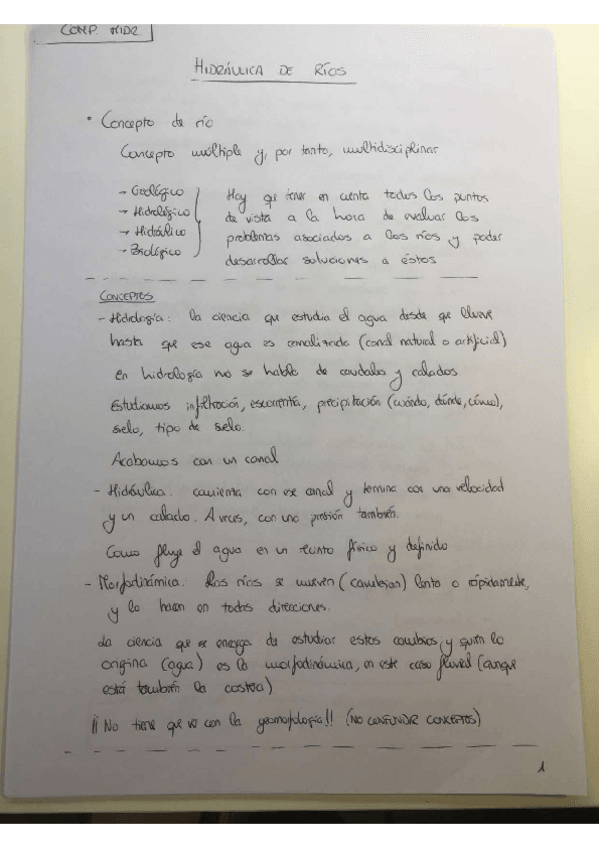 COMP. HIDR
HIDRÁULICA DE RÍOS
• Concepto de río
Concepto múltiple y, por tanto, multidisciplinar
→ Geológico
→ Hidrológico
→ Hidráulico
→ Biológico
Hay que tener en cuenta todos los puntos
de vista a la hora de evaluar los
problemas asociados a los ríos y poder
desarrollar soluciones a éstos
CONCEPTOS
- Hidrología: la ciencia que estudia el agua desde que llueve
hasta que ese agua es canalizada (canal natural o artificial)
En hidrología no se habla de caudales y calados
Estudiamos infiltración, escorrentía, precipitación (cuándo, dónde, cómo),
suelo, tipo de suelo.
Acabamos con un canal
- Hidráulica: comienza con ese canal y termina con una velocidad
y un calado. A veces, con una presión también.
Como fluye el agua en un recinto físico y definido
- Morfodinámica: Los ríos se mueven (cambian) lenta o rápidamente,
y lo hacen en todas direcciones.
La ciencia que se encarga de estudiar estos cambios y quién lo
origina (agua) es la morfodinámica, en este caso fluvial (aunque
está también la costera)
¡¡No tiene que ver con la geomorfología!! (NO CONFUNDIR CONCEPTOS)
1